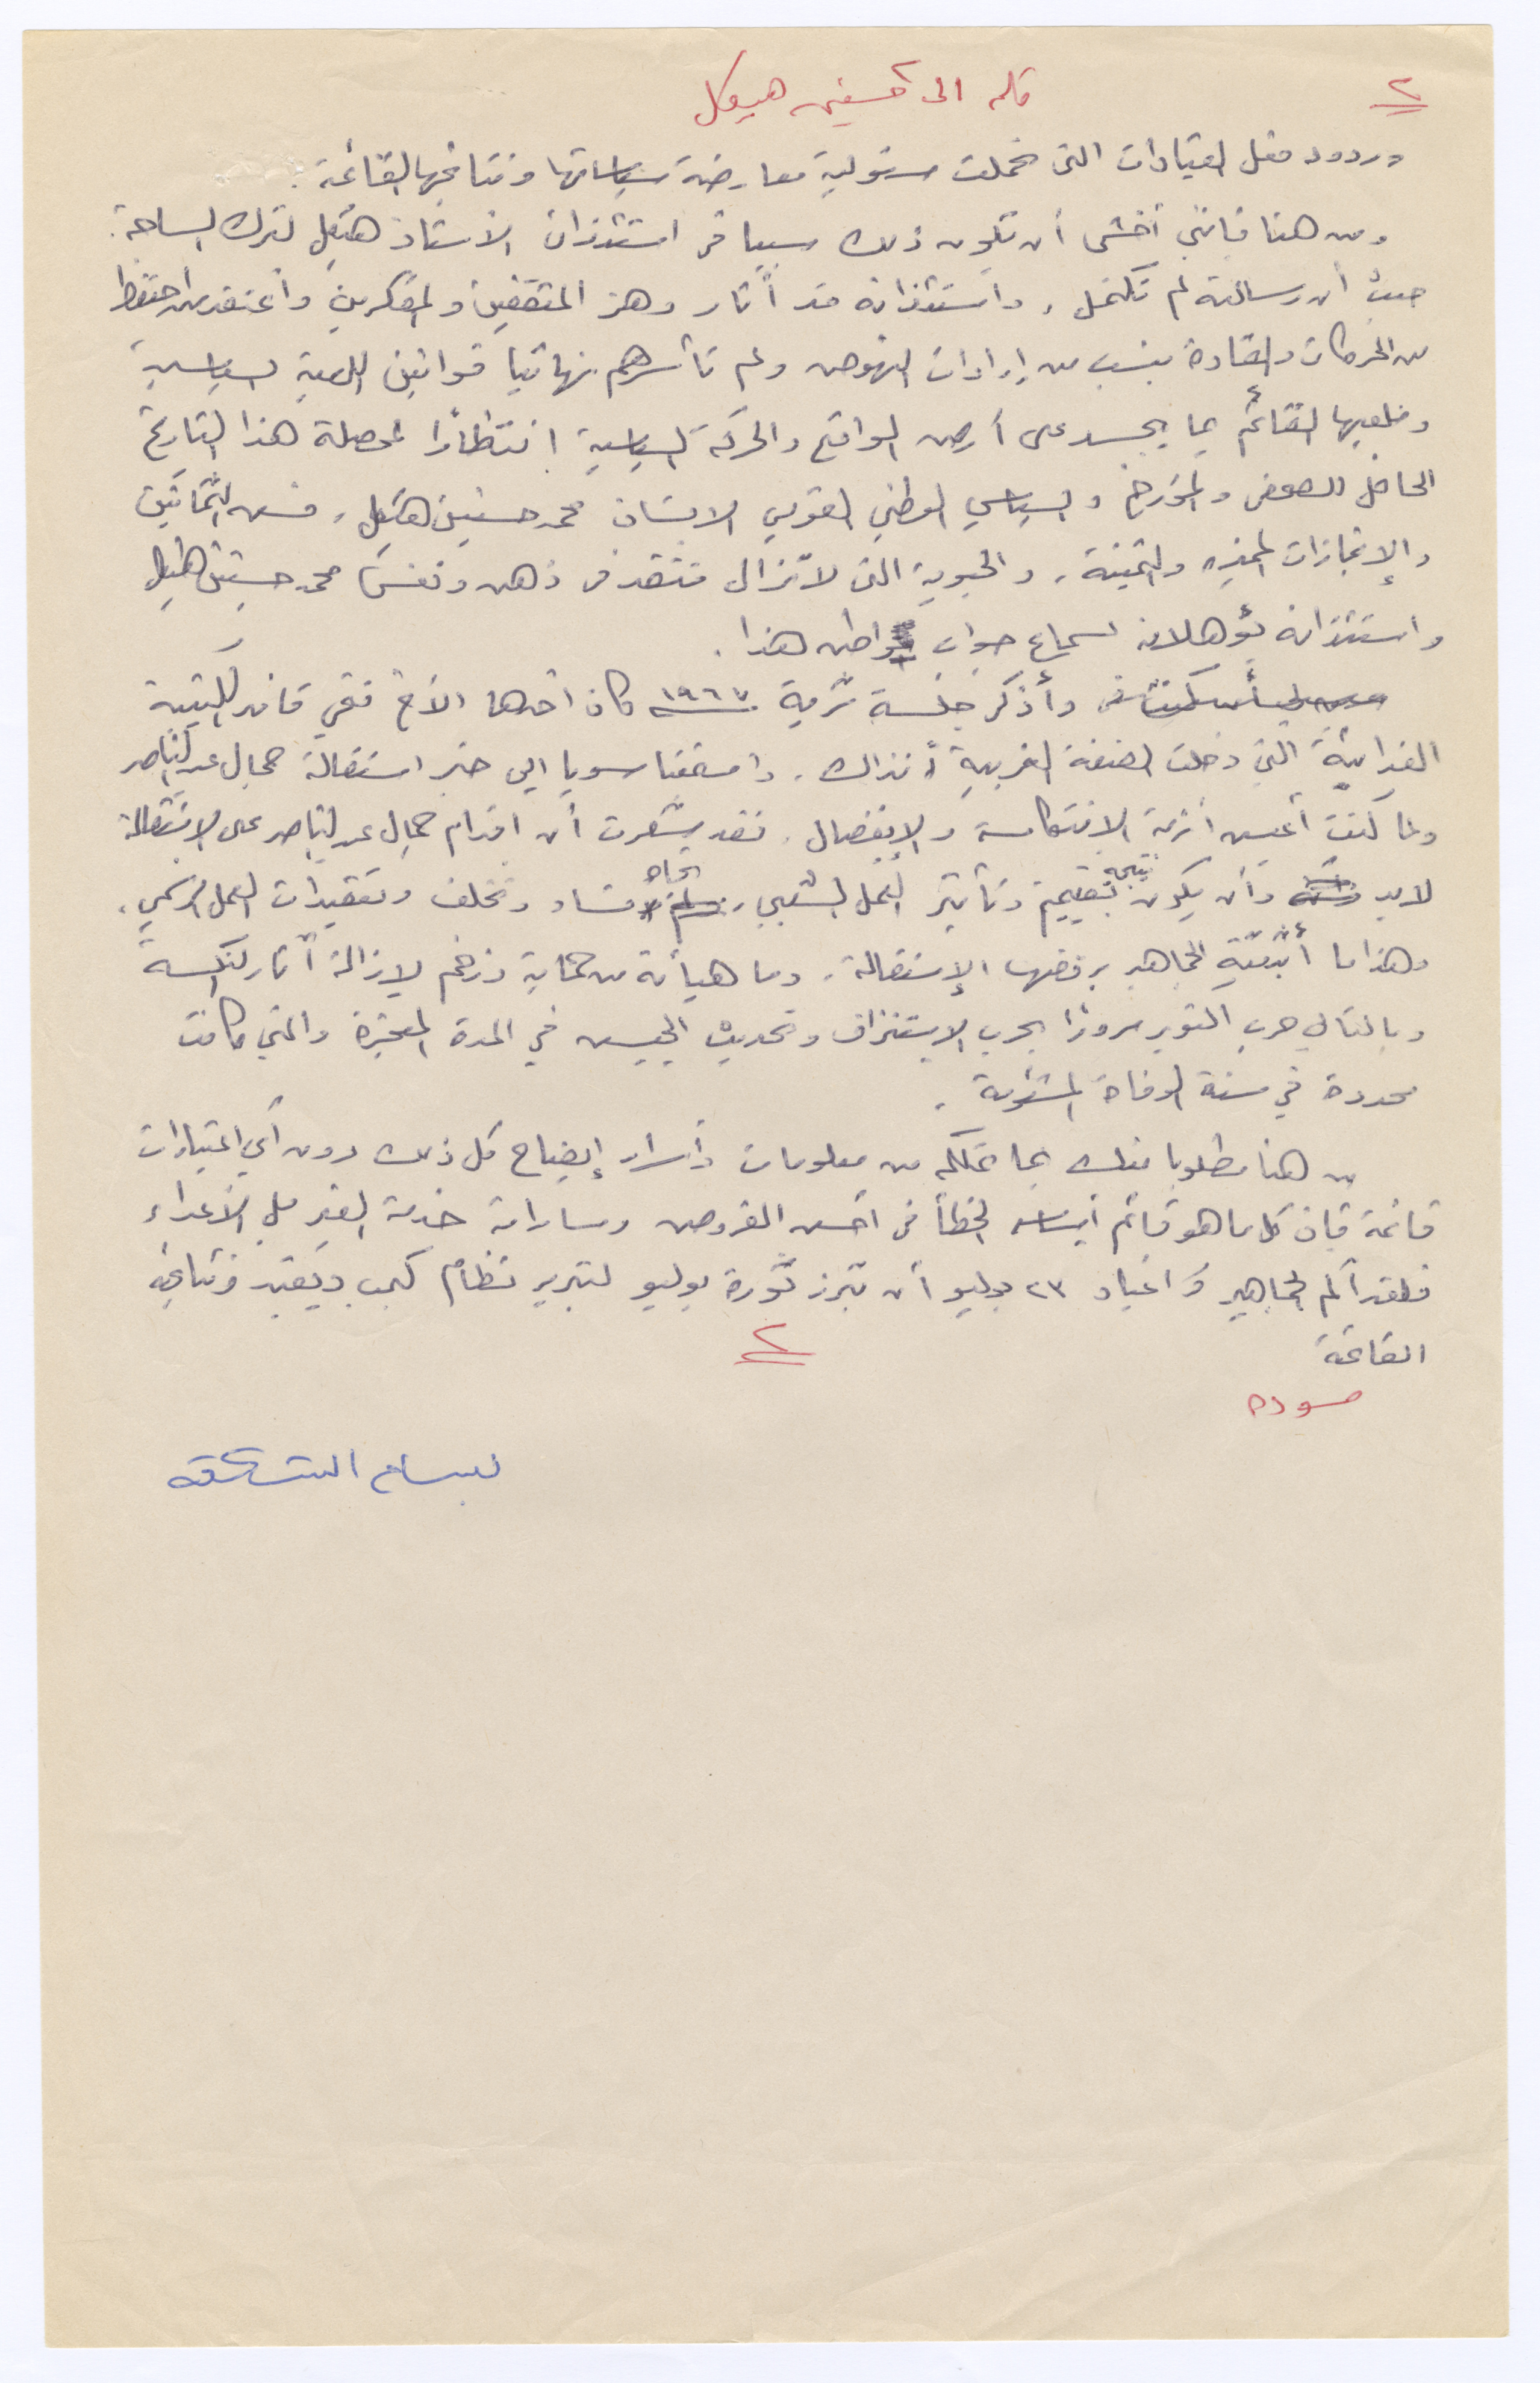 ٢
الى حسنين هيكل
وردود فعل القيادات التي تحملت مسئولية معارضة سياساتها ونتائجها القائمة.
ومن هنا فانني أخشى أن تكون ذلك سببا في استئذان الأستاذ هيكل لترك الساحة.
حيث أن رسالته لم تكتمل، واستئذانه قد أثار وهز المثقفين والمفكرين وأعتقد من احتفظ
من الحركات والقادة بنسب من إرادات النهوض ولم تأسرهم نهائيا قوانين اللعبة السياسية
وملعبها القائم بما يجسد على أرض الواقع والحركة السياسية انتظارا لمحصلة هذا التاريخ
الحافل للصحفي والمؤرخ والسياسي الوطني القومي الانسان محمد حسنين هيكل، فسن الثمانين
والإنجازات المميزه والثمينة، والحيوية التي لا تزال تتقد في ذهن ونفس محمد حسنين هيكل
واستئذانه يؤهلانه لسماع جواب مواطن هذا.
وأذكر جلسة ١٩٦٧ كان أحدها الأخ فتحي قائد الكتيبة
الفدائية التي دخلت الضفة الغربية أنذاك، واستمعنا سويا الى خبر استقالة جمال عبد الناصر
ولما كنت أعيش أزمة الانتكاسة والإنفصال، فقد شعرت أن اقدام جمال عبد الناصر على الاستقالة
لابد وأن يكون نتيجة تقييم وتأثير العمل الشعبي، تجاه فساد وتخلف وتعقيدات العمل الرسمي،
وهذا ما أثبتته الجماهير برفضها الإستقالة، وما هيأته من حماية وزخم لازالة أثار النكسة
وبالتالي حرب اكتوبر مرورا بحرب الإستنزاف وتحديث الجيش في المدة المعجزة والتي كانت
محددة في سنة الوفاة المشئومة.
من هنا مطلوبا منك بما تملكه من معلومات وأسرار إيضاح كل ذلك دون أي اعتبارات
قائمة فان كل ما هو قائم أساسه الخطأ في أحسن الفروض ومساراته خدمة الغير بل الأعداء
فلقد ألم الجماهير في اعياد ٢٣ يوليو أن تبرز ثورة يوليو لتبرير نظام كمب ديفيد ونتائجه
القائمة
٢
مسوده
بسام الشكعه